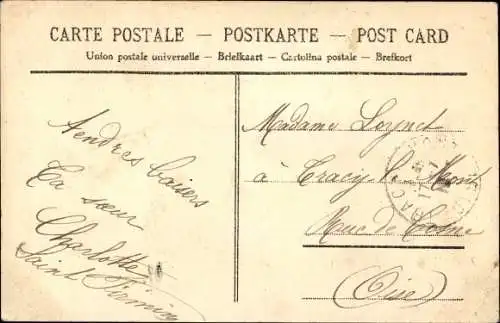 CARTE POSTALE – POSTKARTE – POST CARD
Union postale universelle – Briefkaart – Cartolina postale – Brefkort
Tendres baisers
Ta sœur
Charlotte
Saint Firmin
Madame Loynet
à Tracy le Mont
Rue de
(Oise)